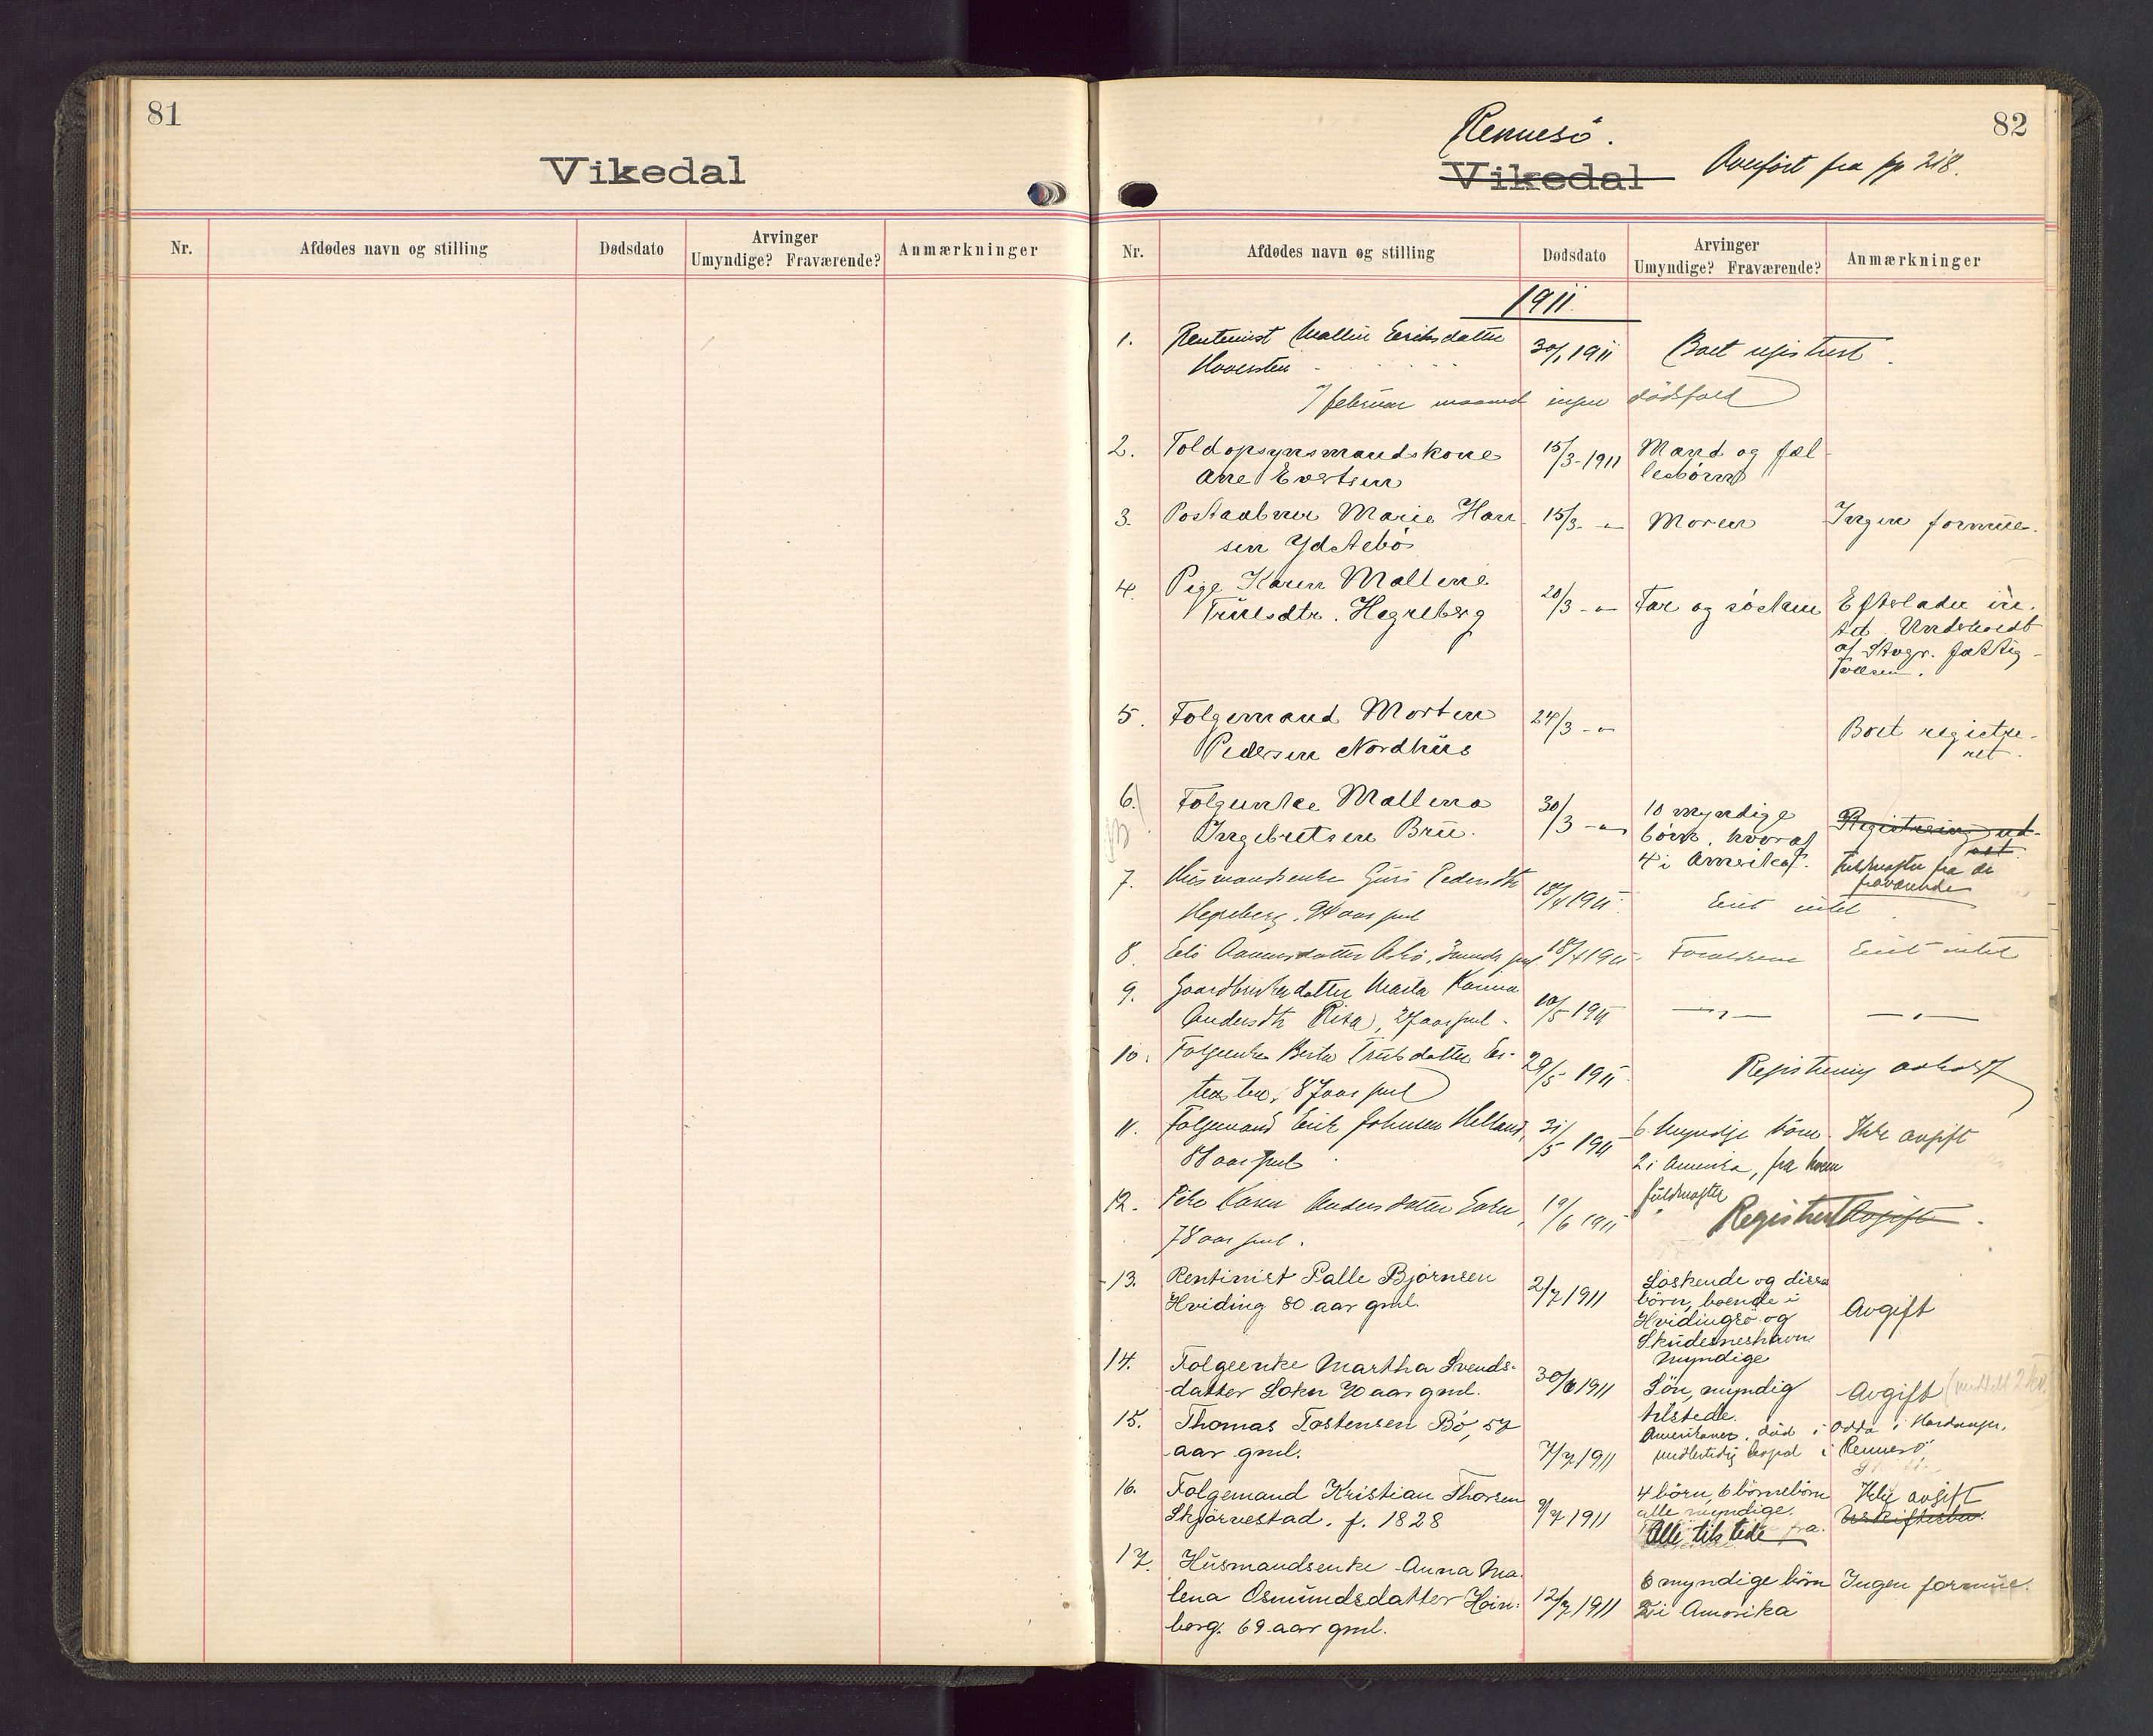 81
Vikedal
Nr.
Afdødes navn og stilling
Dødsdato
Arvinger
Umyndige? Fraværende?
Anmærkninger
82
Rennesö.
Vikedal
Overført fra pp 218.
Nr.
Afdødes navn og stilling
Dødsdato
Arvinger
Umyndige? Fraværende?
Anmærkninger
1911.
1. Rentenist Malline Eriksdatter 30/1 1911 Boet registrert.
I februar maaned ingen dödsfald
2. Toldopsynsmandskone 15/3-1911 Mand og fæl-
Ane Evertsen lesbörn
3. Postaabner Marie Han- 15/3- " Moren Ingen formue.
sen Ydstebö
4. Pige Karen Malline 20/3 - " Far og söskend Efterlader in-
Trulsdtr. Hegreberg tet Underholdt
af Stvgr. fattig-
væsen.
5. Folgemand Morten 24/3 - " Boet registre-
Pedersen Nordhus ret.
6. Folgeenke Mallena 30/3 - " 10 myndige Registrering ud-
Ingebretsen Bru. börn, hvoraf
4 i Amerika. Fuldmagter fra de
fraværende
7. Husmandsenke Guri Pedersdtr 18/4 1911. Eiet intet.
Hegreberg, 94 aar gml
8. 18/4 1911. Forældrene Eiet intet
9. Gaardbrukerdatter Marta Karina 10/5 1911 — " — — " —
Andersdtr Reisa, 27 aar gml.
10. Folgeenke Berta Trulsdatter 29/5 1911. Registrering avholdt
87 aar gml
11. Folgemand Erik Johnsen Helland, 31/5 1911 6 myndige börn. Ikke avgift
88 aar gml. 2 i Amerika, fra hvem
fuldmagter
12. Pike Karen Andersdatter Sokn, 19/6 1911 Registrert Avgift.
78 aar gml.
13. Rentinist Palle Bjørnsen 2/7 1911 Söskende og disses
Hviding 80 aar gml. börn, boende i Avgift
Hvidingsö og
Skudesneshavn
Myndige
14. Folgeenke Martha Svends- 30/6 1911 Sön, myndig Avgift
datter Sokn 70 aar gml. tilstede.
15. Thomas Tostensen Bö, 57 7/7 1911 Amerikaner, död i Odda i Hardanger,
aar gml. midlertidig i Rennesö
16. Folgemand Kristian Thorsen 9/7 1911 4 börn, 6 börnebörn Ikke avgift
Skjørvestad. f. 1828 alle myndige.
Alle tilstede
17. Husmandsenke Anna Ma- 12/7 1911 6 myndige börn Ingen formue.
lena Osmundsdatter Hein- 2 i Amerika
berg. 69 aar gml.